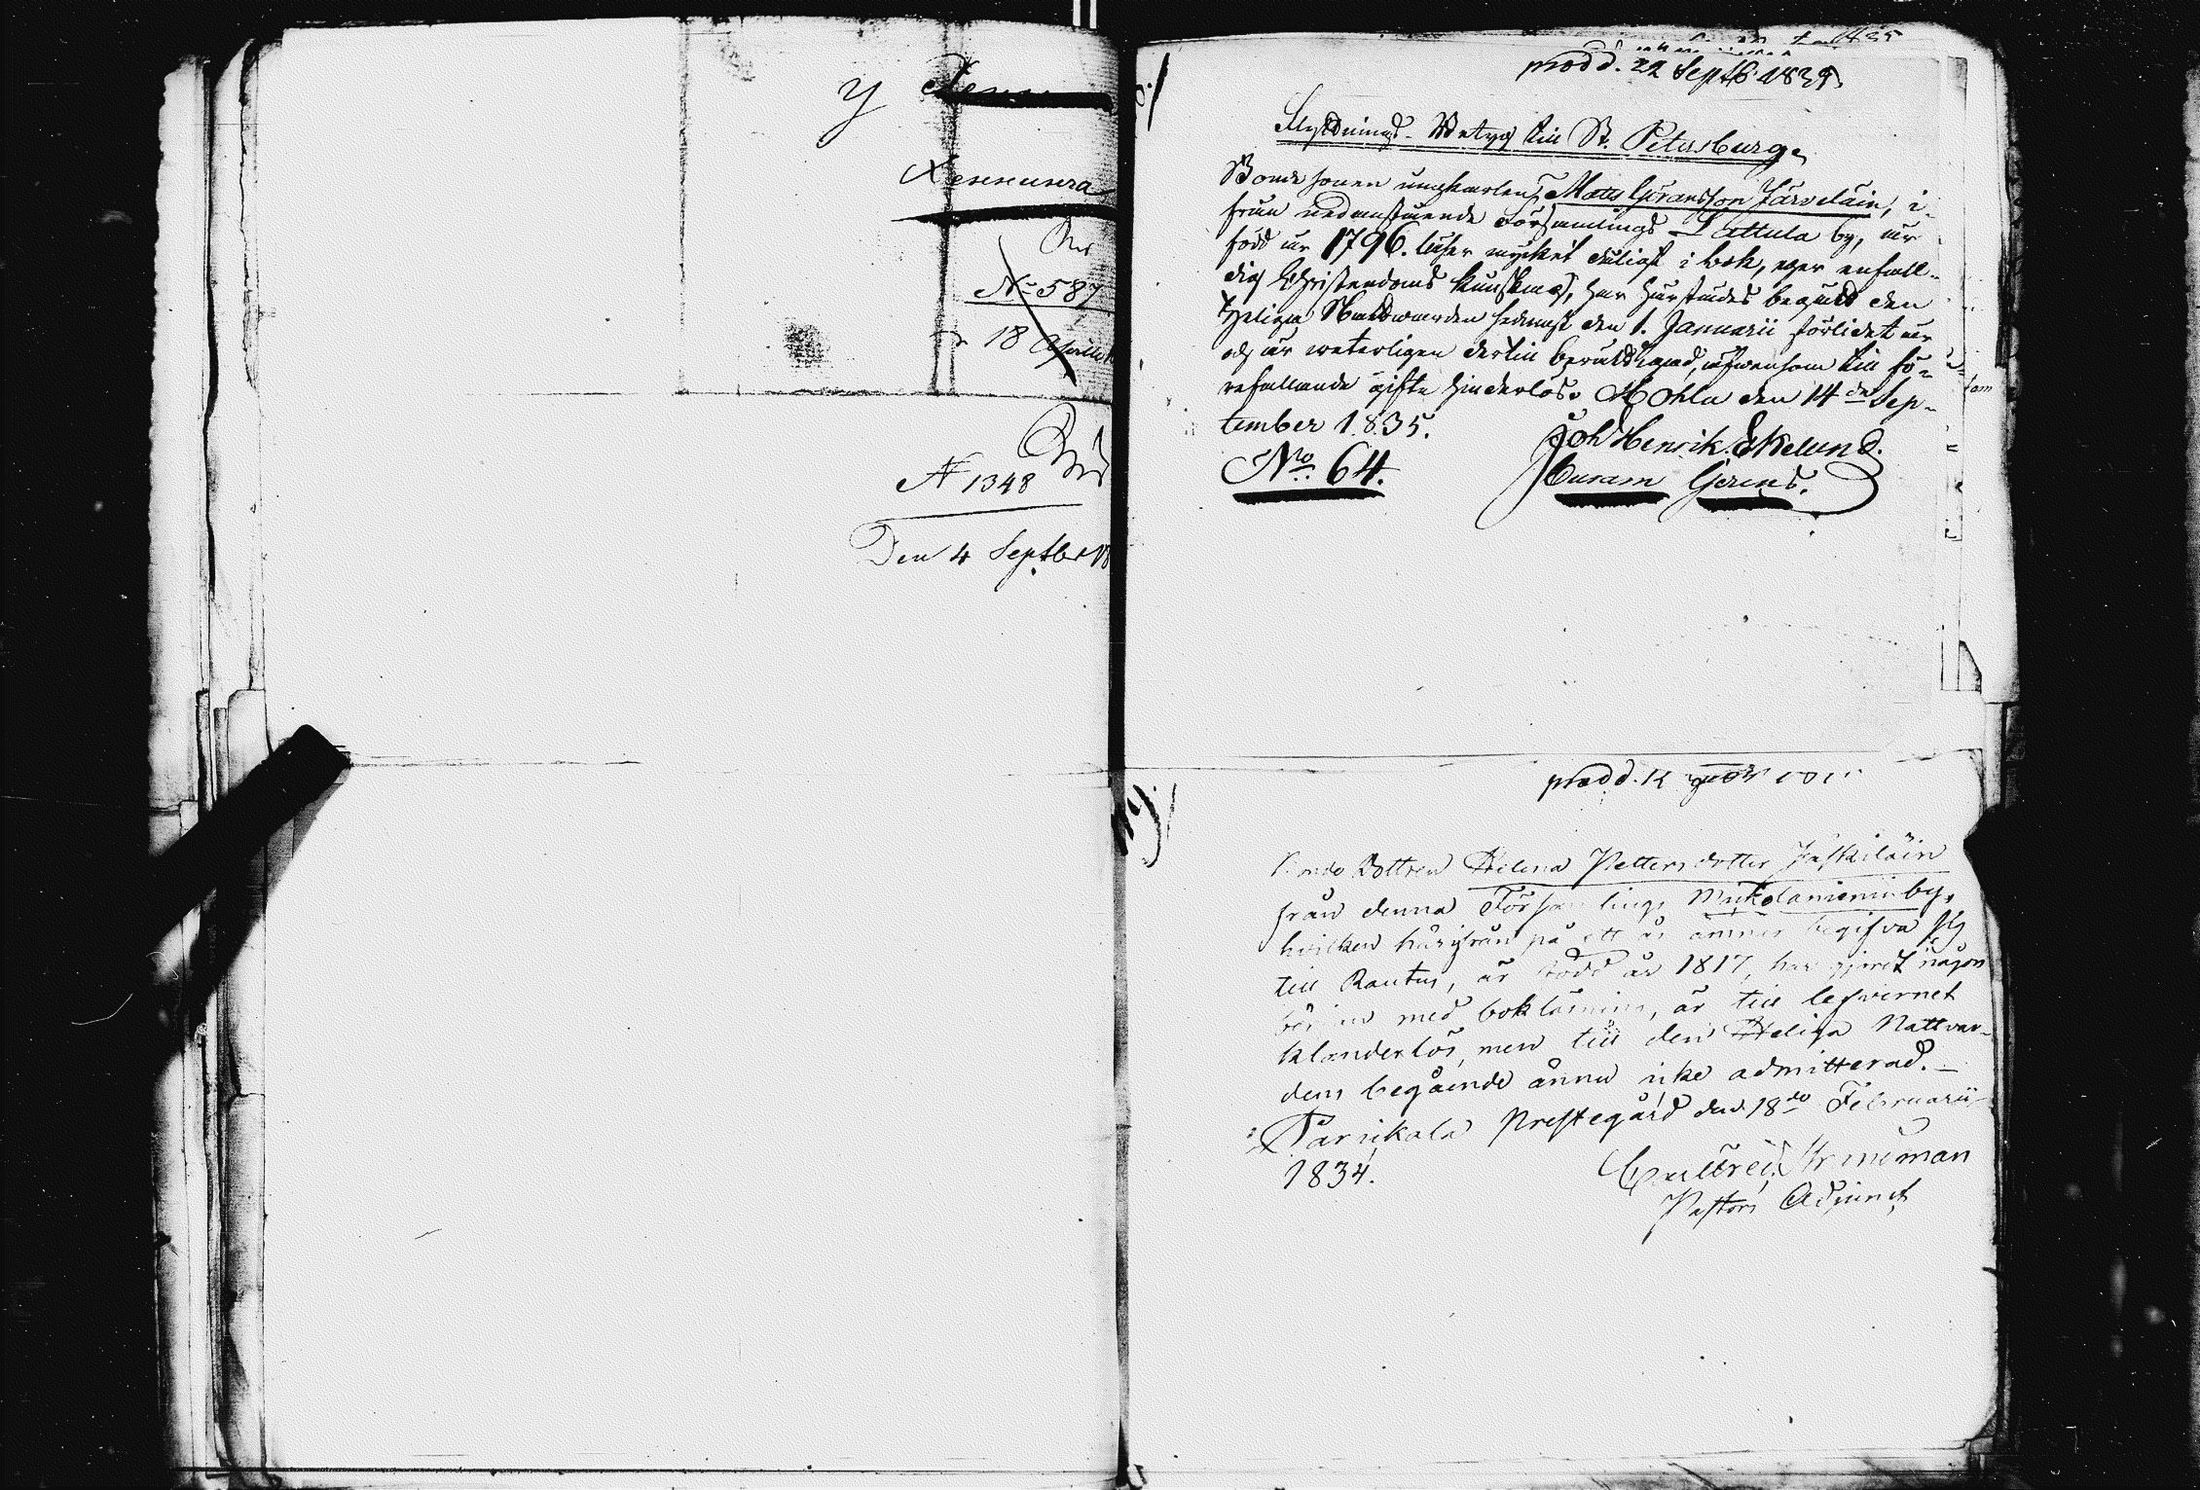 N. 587
18 Aprill
N 1348
Den 4 Septbr 18
prod d. 22 Septb. 1835.
Flyttnings-Betyg till St. Petersburg.
Bonde sonen ungkarlen Mats Göransson Järveläin, i-
från nedanstående Församlings Lattula by, är
född år 1796. läser mycket dåligt i bok, eger enfall-
dig Christendoms kunskap, har härstädes begått den
Heliga Nattwarden sednast den 1. Januarii förlidet år
och är waterligen dertill berättigad, äfwensom till fö-
refallande gifte hinderlös. Mohla den 14 de Sep-
tember 1835.
Joh Henrik Ekelund.
No. 64.
Curam Gerens.
prod d. 12
Bonde Dottren Helena Pettersdotter Jaskiläin
från denna Församlings by,
hvilken härifrån på ett år ämnar begifva sig
till Rautus, är född år 1817, har gjordt någon
början med bokläsning, är till lefvernet
klanderlös, men till den Heliga Nattvar-
dens begående ännu icke admitterad.
Parikala Prestegård den 18de Februarii
1834.
Pastors Adjunct